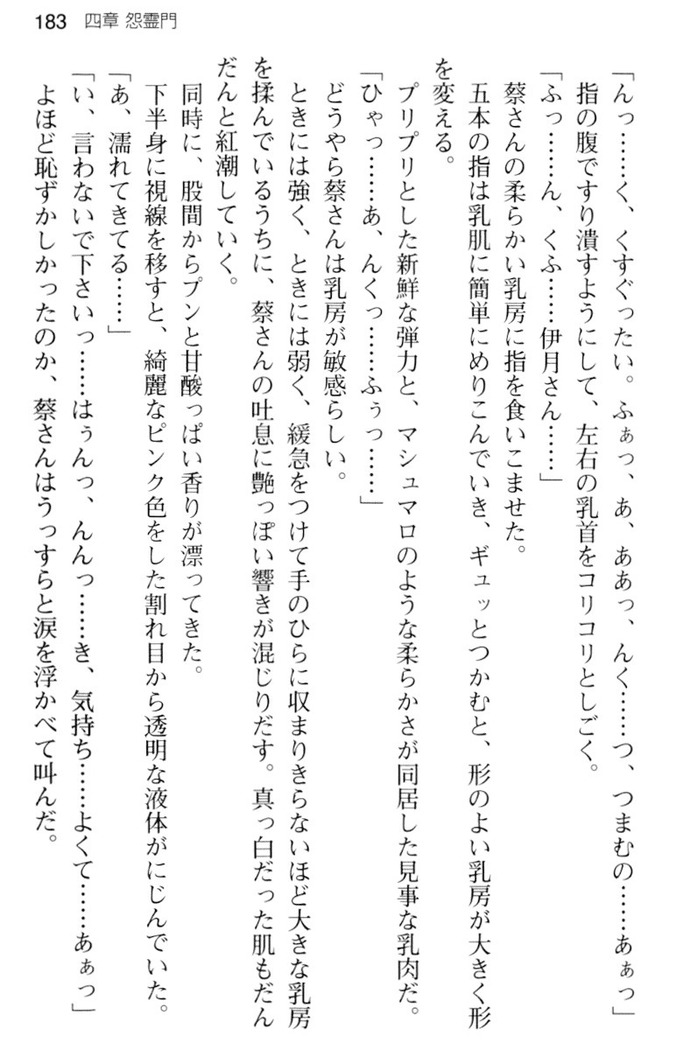 183 四章 怨霊門
「んっ……く、くすぐったい。ふぁっ、あ、ああっ、んく……つ、つまむの……あぁっ」
指の腹ですり潰すようにして、左右の乳首をコリコリとしごく。
「ふっ……ん、くふ……伊月さん……」
蔡さんの柔らかい乳房に指を食いこませた。
五本の指は乳肌に簡単にめりこんでいき、ギュッとつかむと、形のよい乳房が大きく形
を変える。
プリプリとした新鮮な弾力と、マシュマロのような柔らかさが同居した見事な乳肉だ。
「ひゃっ……あ、んくっ……ふぅっ……」
どうやら蔡さんは乳房が敏感らしい。
ときには強く、ときには弱く、緩急をつけて手のひらに収まりきらないほど大きな乳房
を揉んでいるうちに、蔡さんの吐息に艶っぽい響きが混じりだす。真っ白だった肌もだん
だんと紅潮していく。
同時に、股間からプンと甘酸っぱい香りが漂ってきた。
下半身に視線を移すと、綺麗なピンク色をした割れ目から透明な液体がにじんでいた。
「あ、濡れてきてる……」
「い、言わないで下さいっ……はぅんっ、んんっ……き、気持ち……よくて……あぁっ」
よほど恥ずかしかったのか、蔡さんはうっすらと涙を浮かべて叫んだ。